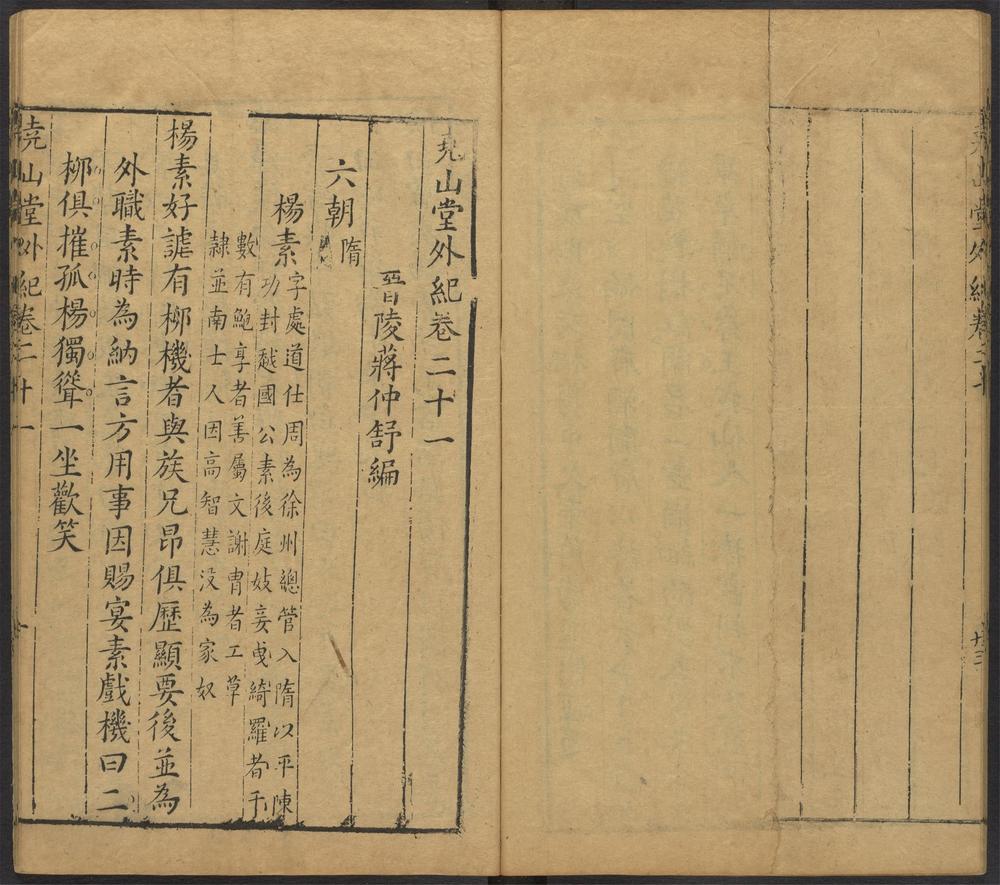 堯山堂外紀卷二十
廿三
堯山堂外紀卷二十一
晉陵蔣仲舒編
六朝隋
楊素字處道仕周為徐州總管入隋以平陳
功封越國公素後庭妓妾曳綺羅者千
數有鮑享者善屬文謝胄者工草
隸並南士人因高智慧没為家奴
楊素好謔有栁機者與族兄昂俱歷顯要後並為
外職素時為納言方用事因賜宴素戲機曰二
栁俱摧孤楊獨聳一坐歡笑
堯山堂外紀卷二十一
一